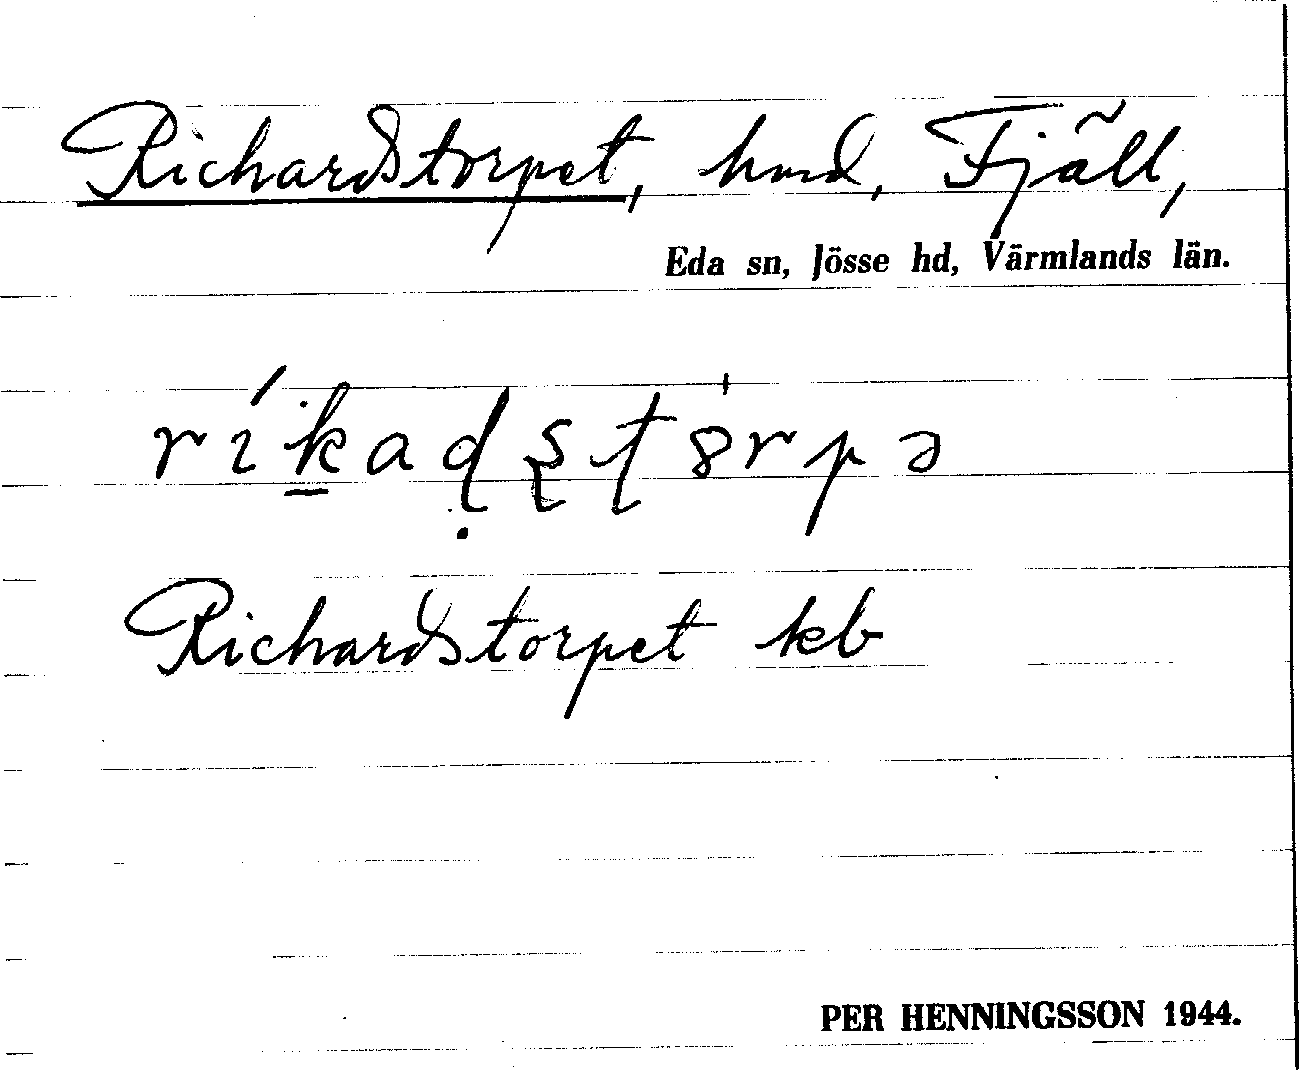 Richardstorpet, hmd, Fjäll,
Eda sn, Jösse hd, Värmlands län.
Richardstorpet kb
PER HENNINGSSON 1944.